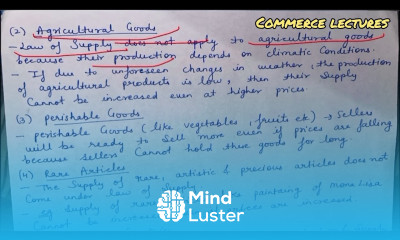 Commerce Lectures
(2) Agricultural Goods
- Law of Supply does not apply to agricultural goods
because their production depends on climatic conditions.
- If due to unforeseen changes in weather, the production
of agricultural products is low, then their supply
cannot be increased even at higher prices.
(3) perishable Goods
- perishable Goods (like vegetables, fruits etc) → Sellers
will be ready to sell more even if prices are falling
because sellers cannot hold these goods for long.
(4) Rare Articles
- The Supply of rare, artistic & precious articles does not
Come under law of Supply.
- If Supply of rare painting of Mona Lisa
Cannot be increased are increased
Mind
Luster